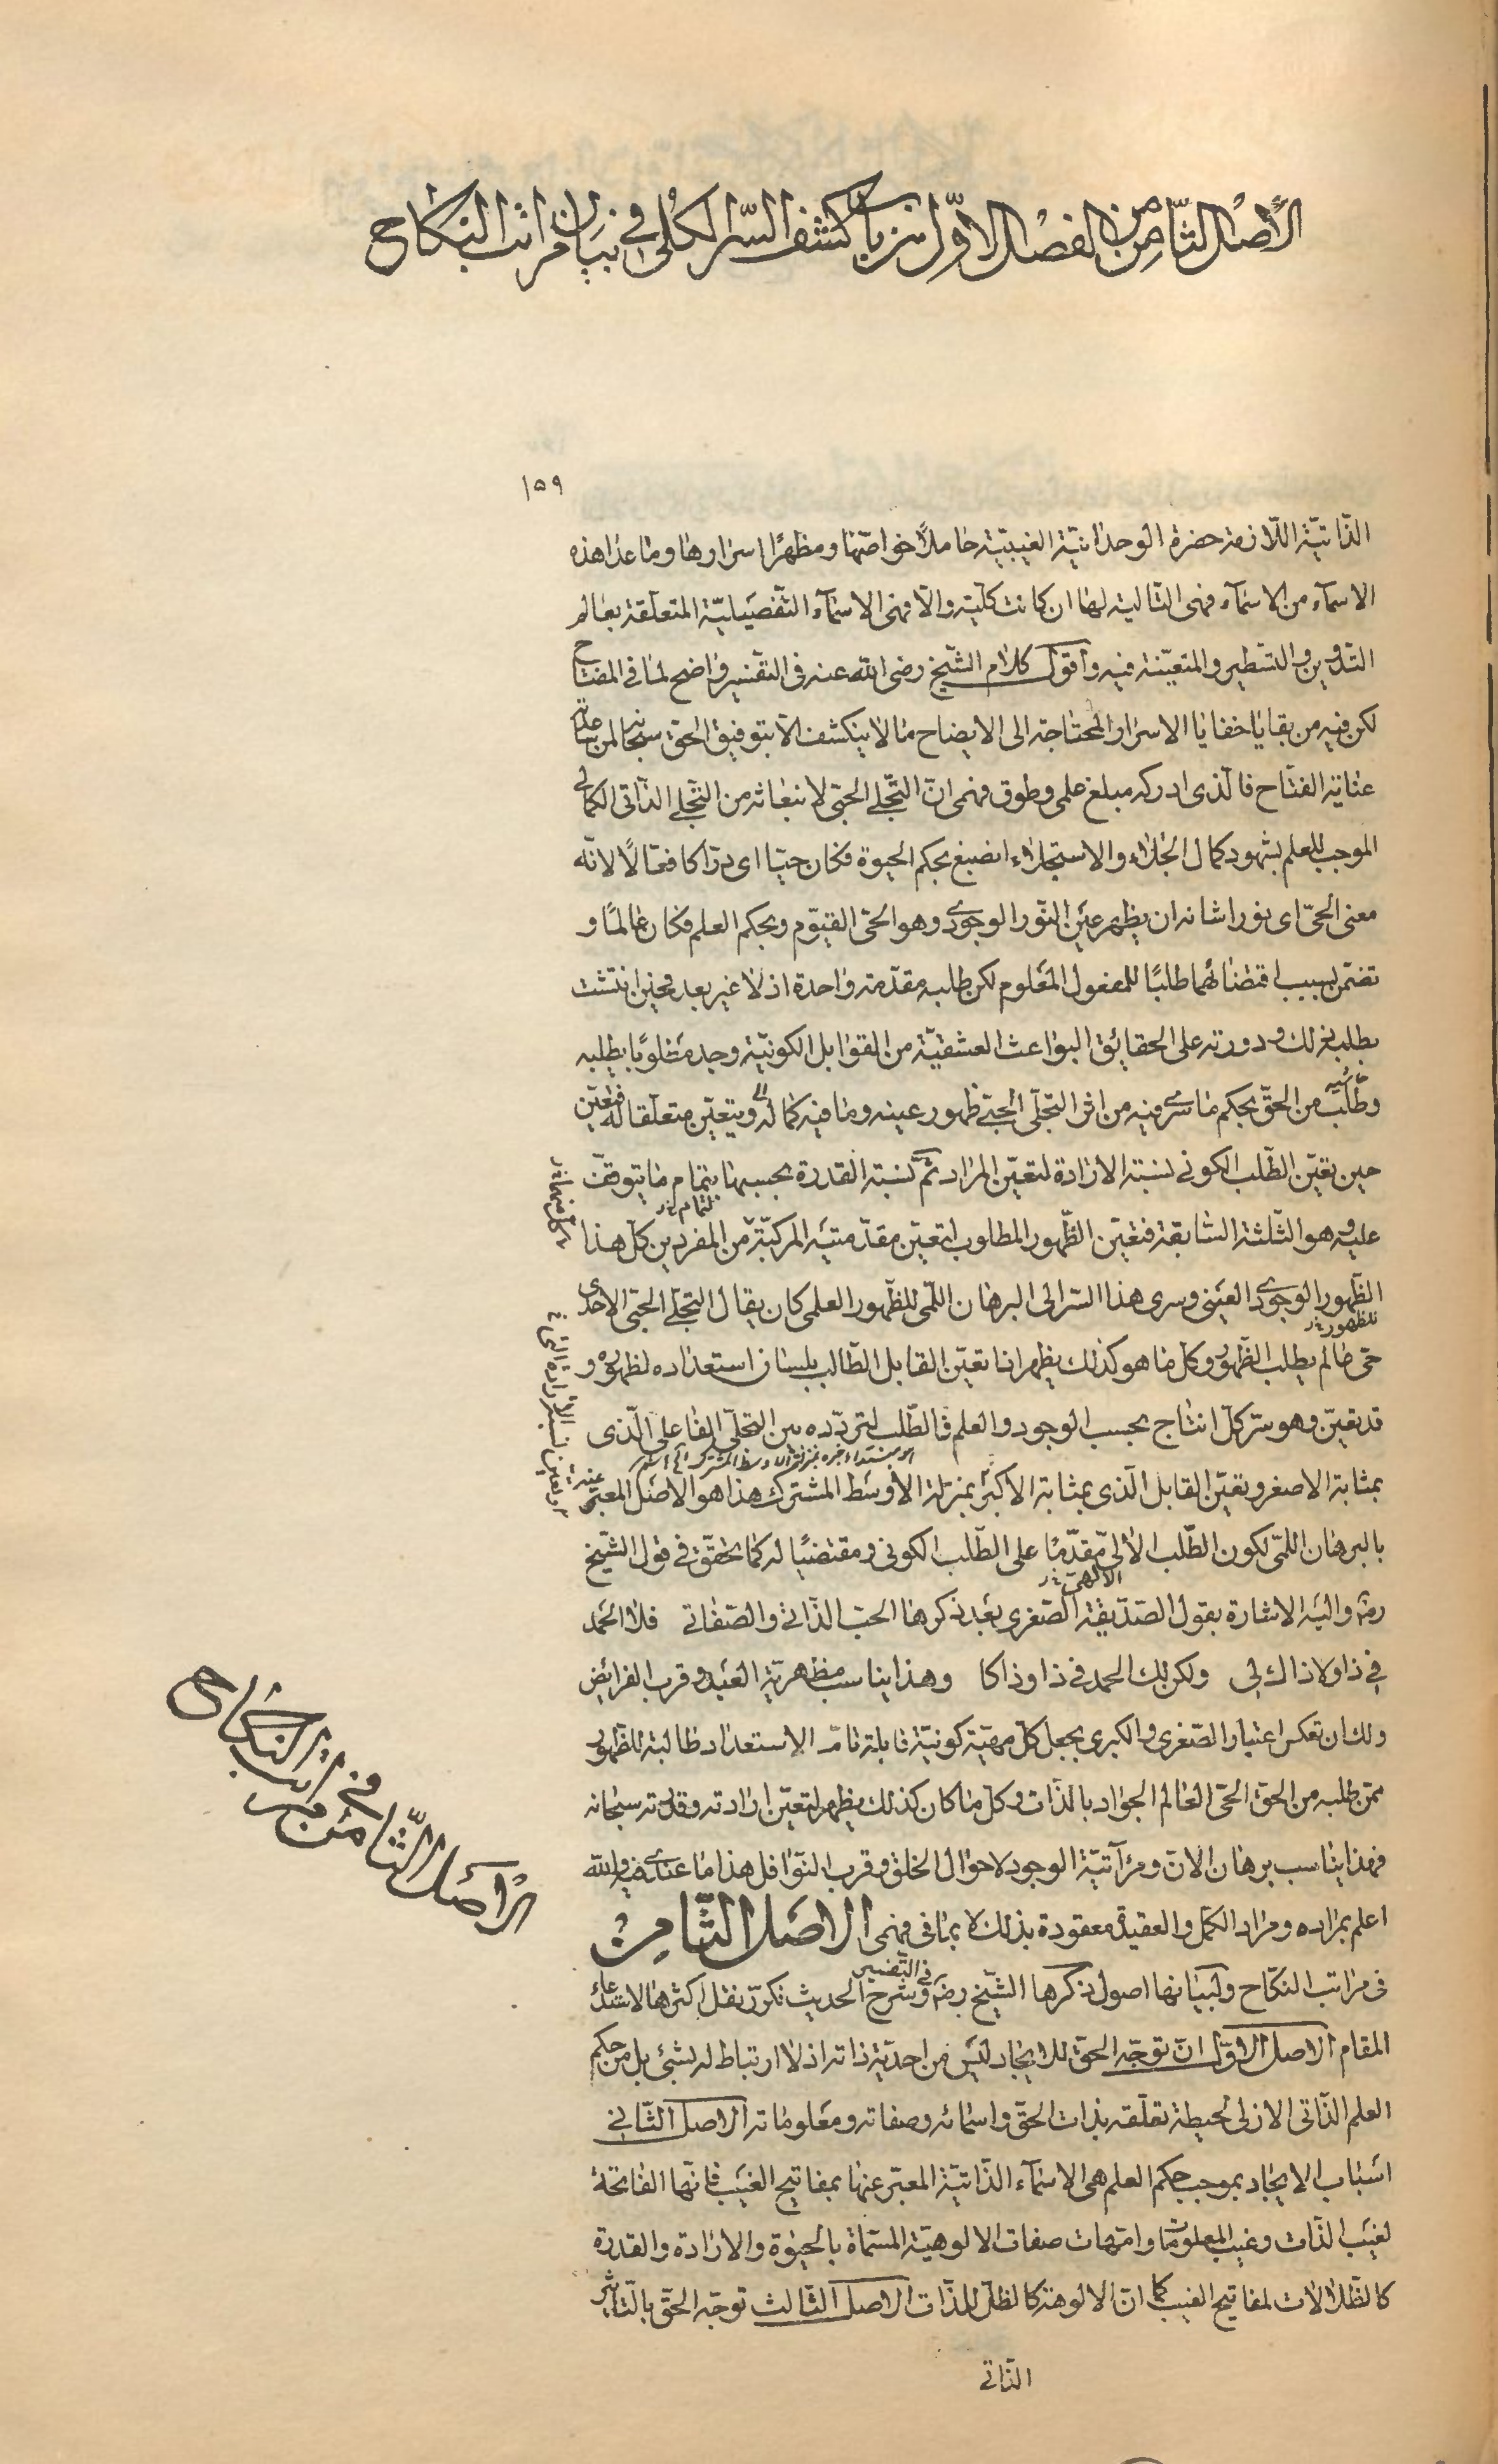 الأصل الثامن من الفصل الاول من باب كشف السر الكلى فى بيان مراتب النكاح
١٥٩
الذّاتيّة اللّازمة حضرة الوحدانيّة الغيبيّة حاملاً خواصّها ومظهرًا اسرارها وما عدا هذه
الاسمآء من الاسمآء فهى التّالية لها ان كانت كلّية والّا فهى الاسمآء التّفصيليّة المتعلّقة بعالم
التدوين والتسطير والمتعيّنة فيه وأقول كلام الشّيخ رضى الله عنه فى التفسير واضح لما فى المفتاح
لكن فيه من بقايا خفايا الاسرار المحتاجة الى الايضاح ما لا ينكشف الّا بتوفيق الحق سبحانه لمن ساعدته
عناية الفتّاح فالّذى ادركه مبلغ علمى وطوق فهمى انّ التّجلى الحبّى لانبعاثه من التّجلى الذّاتى الكمالى
الموجب للعلم بشهود كمال الجلاء والاستجلاء انصبغ بحكم الحيوة فكان حيّا اى درّاكا فعّالًا لانّه
معنى الحىّ اى نورا شانه ان يظهر عين النّور الوجودى وهو الحىّ القيّوم وبحكم العلم فكان عالمًا و
تضمّن بسبب اقتضائهما طلبًا للمفعول المعلوم لكن طلبه مقدّمة واحدة اذ لا غير بعد فحين انتشت
بطلبه ذلك ودورته على الحقائق البواعث العشقيّة من القوابل الكونيّة وجد مطلوبًا بطلبه
وطلب قابليّة من الحقّ بحكم ما سرى فيه من اثر التجلّى الحبّى ظهور عينه وما فيه كماله ويتعيّن متعلّقا له فتعيّن
حين تعيّن الطّلب الكونى نسبة الارادة لتعيّن المراد ثمّ نسبة القدرة بحسبها بتمام ما يتوقّف
لتمام خ ر
عليه وهو الثّلثة السّابقة فتعيّن الظّهور المطلوب لتعيّن مقدّمتيه المركّبة من المفردين كل هذا
الظّهور الوجودى العينى وسرى هذا السّر الى البرهان اللّمى للظّهور العلمى كان يقال التجلّى الحبّى الاحدى
للظهور خ ر
حىّ عالم يطلب الظّهور وكل ما هو كذلك يظهر اذا تعيّن القابل الطّالب بلسان استعداده لظهوره و
قد تعيّن وهو سرّ كلّ انتاج بحسب الوجود والعلم فالطّلب لتردّده بين التجلّى الفاعلى الّذى
بمثابة الاصغر وتعيّن القابل الّذى بمثابة الاكبر بمنزلة الأوسط المشترك هذا هو الاصل المعبّر عنه
بالبرهان اللمّى لكون الطّلب الالهى مقدّمًا على الطّلب الكونى ومقتضيًا له كما تحقّق فى قول الشّيخ
الالهىّ خ ر
رض واليه الاشارة بقول الصّدّيقة الصّغرى بعد ذكرها الحبّ الذّاتى والصّفاتى فلا الحمد
فى ذا ولا ذاك لى ولكن لك الحمد فى ذا وذاكا وهذا يناسب مظهريّة العبد وقرب الفرائض
ولك ان تعكس اعتبار الصّغرى والكبرى بجعل كلّ مهيّة كونيّة قابلة تامّ الاستعداد طالبة للظّهور
ممّن طلبه من الحق الحىّ العالم الجواد بالذّات وكلّ ما كان كذلك يظهر لتعيّن ارادته وقدرته سبحانه
فهذا يناسب برهان الانّ ومرآتيّة الوجود لاحوال الخلق وقرب النّوافل هذا ما عندى فيه والله
اعلم بمراده ومراد الكمّل والعقيدة معقودة بذلك لا بما فى فهمى الاصل الثّامن
فى مراتب النكّاح ولبيانها اصول ذكرها الشّيخ رض وشرح الحديث نكرّر نقل اكثرها لاستدعاء
فى التّفسير
المقام الاصل الاوّل انّ توجّه الحقّ للايجاد ليس من احديّة ذاته اذ لا ارتباط له بشئ بل من حكم
العلم الذّاتى الازلى لحيطة تعلّقه بذات الحقّ واسمائه وصفاته ومعلوماته الاصل الثّانى
اسباب الايجاد بموجب حكم العلم هى الاسمآء الذّاتيّة المعبّر عنها بمفاتيح الغيب فانّها الفاتحة
لغيب الذّات وغيب المعلومات وامّهات صفات الالوهيّة المسمّاة بالحيوة والارادة والقدرة
كالظّلالات لمفاتيح الغيب كما انّ الالوهة كالظلّ للذّات الاصل الثّالث توجّه الحقّ بالتّأثير
الذّاتى
الاصل الثّامن فى مراتب النكاح